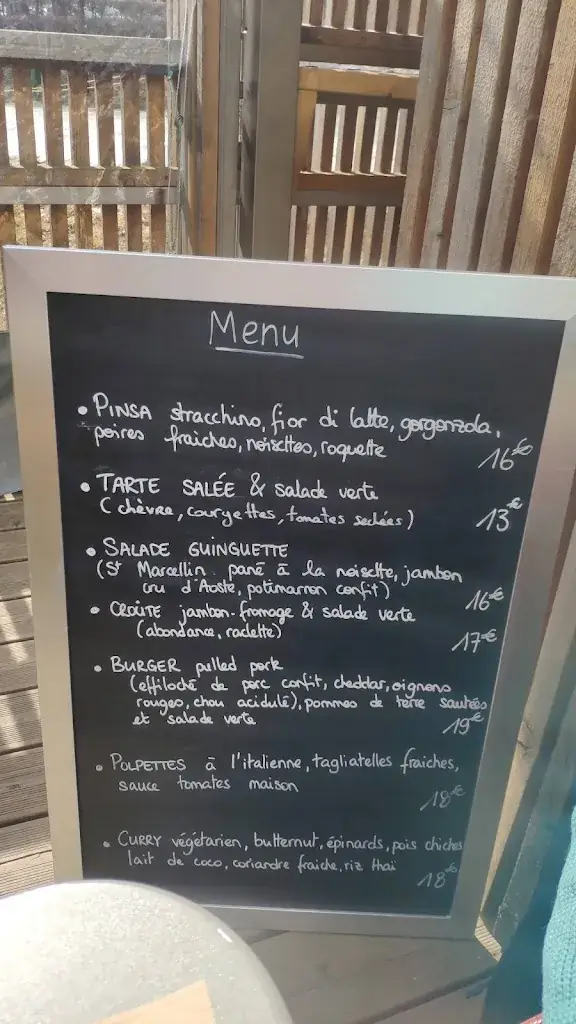 Menu
• PINSA stracchino, fior di latte, gorgonzola,
poires fraiches, noisettes, roquette
16€
• TARTE SALÉE & salade verte
(chèvre, courgettes, tomates sechées)
13€
• SALADE GUINGUETTE
(St Marcellin pané à la noisette, jambon
cru d'Aoste, potimarron confit)
16€
• CROÛTE jambon-fromage & salade verte
(abondance, raclette)
17€
• BURGER pulled pork
(effiloché de porc confit, cheddar, oignons
rouges, chou acidulé), pommes de terre sautées
et salade verte
19€
• POLPETTES à l'italienne, tagliatelles fraiches,
sauce tomates maison
18€
• CURRY végétarien, butternut, épinards, pois chiches
lait de coco, coriandre fraiche, riz thaï
18€